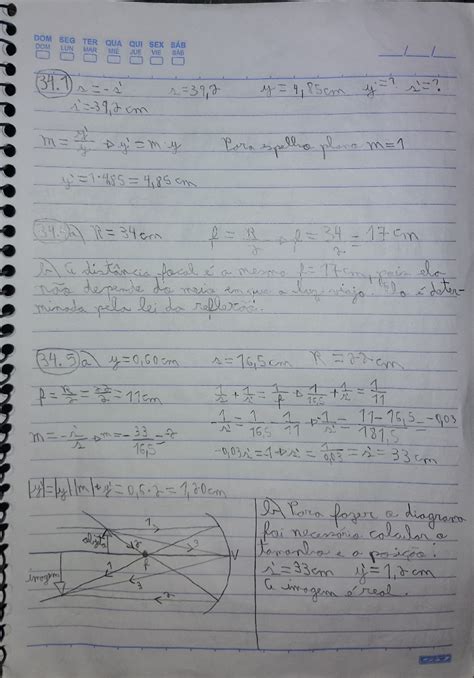 DOM SEG TER QUA QUI SEX SÁB
DOM LUN MAR MIE JUE VIE SÁB
34.1 s = -s' s = 39,2 y = 4,85cm y' = ? s' = ?
s' = -39,2 cm
m = y'/y → y' = m y Para espelho plano m = 1
y' = 1·4,85 = 4,85 cm
a) R = 34 cm f = R/2 → f = 34/2 = 17 cm
b) A distância focal é a mesma f = 17 cm, pois ela
não depende do meio em que a luz viaja. Ela é deter-
minada pela lei da reflexão.
34.5 a) y = 0,60cm s = 16,5cm R = 22 cm
f = R/2 = 22/2 = 11cm 1/s + 1/s' = 1/f → 1/16,5 + 1/s' = 1/11
1/s' = 11 - 16,5/181,5 = -0,03
m = -s'/s → m = -33/16,5 = 2 -0,03 s' = 1 → s' = 1/0,03 = s' = 33 cm
|y'| = |y| |m| → y' = 0,6 · 2 = 1,20cm
b) Para fazer o diagrama
foi necessário calcular o
tamanho e a posição:
s' = 33cm y' = 1,2 cm
A imagem é real.
objeto
imagem
1
2
3
f
V
1
3
2